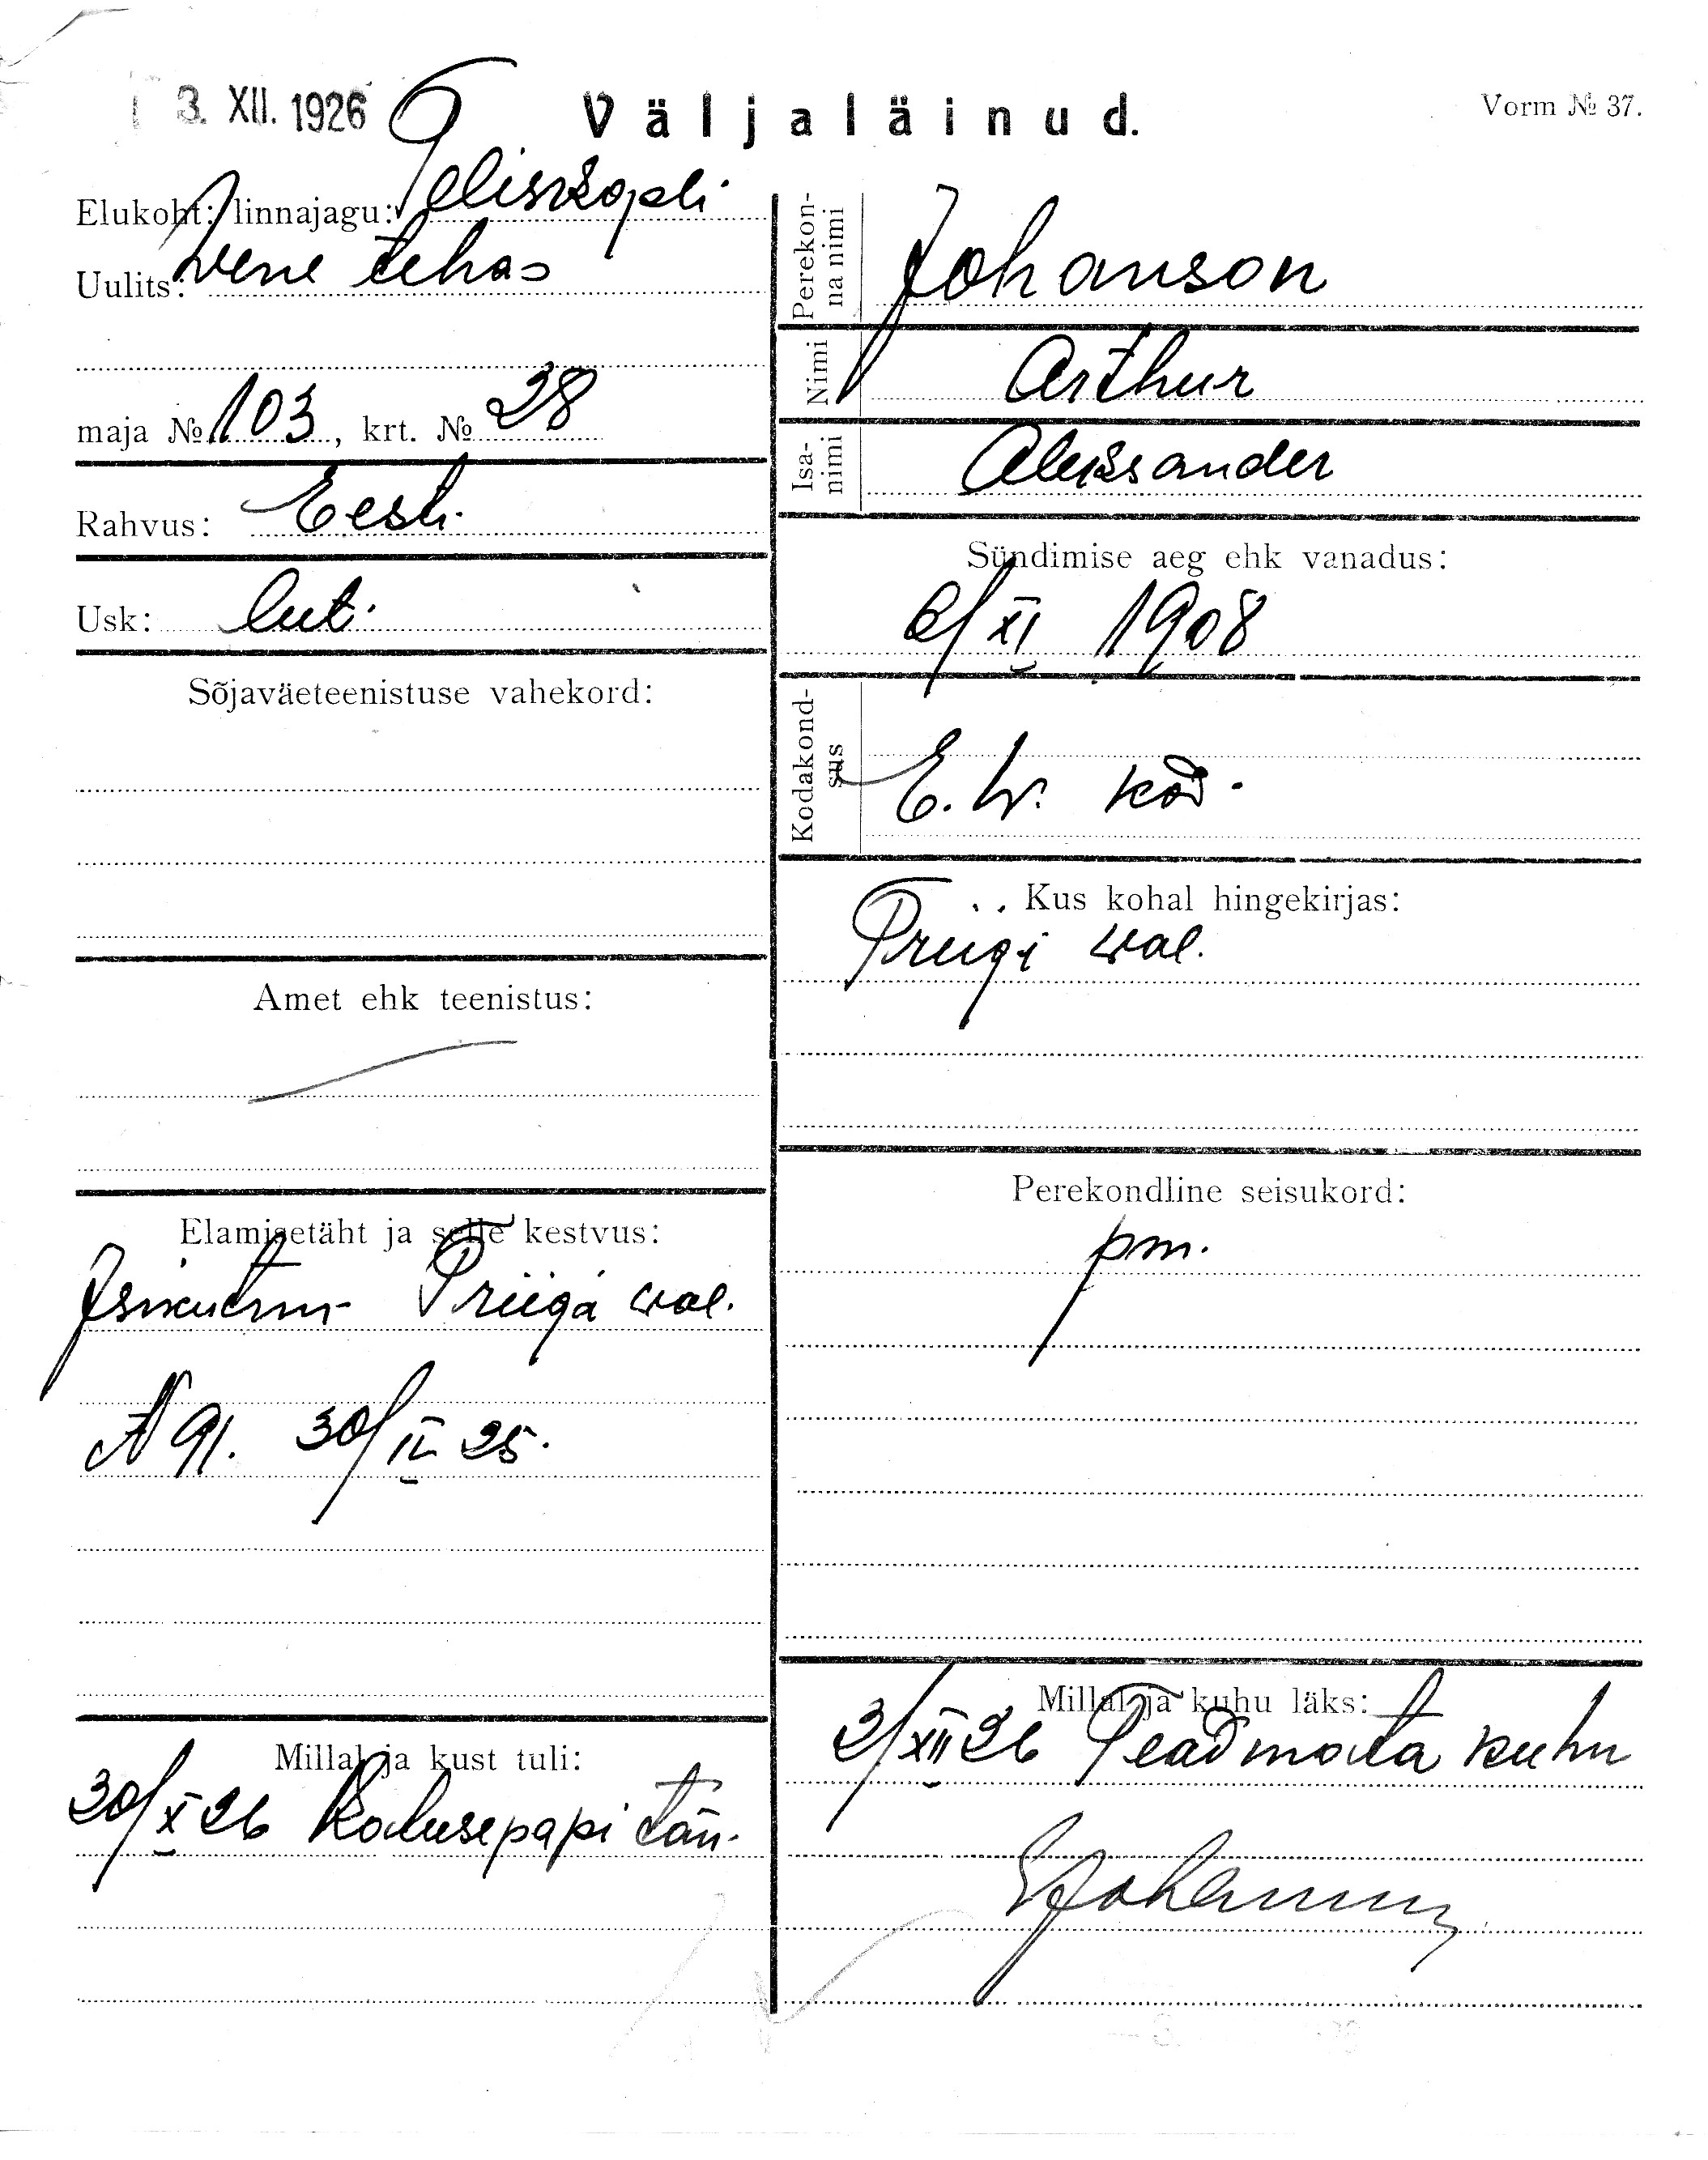 3. XII. 1926
Väljaläinud.
Vorm № 37.
Elukoht: linnajagu: Peliskopli
Uulits: Vene tehas
maja № 103, krt. № 28
Rahvus: Eesti
Usk: lut.
Sõjaväeteenistuse vahekord:
Amet ehk teenistus:
Elamisetäht ja selle kestvus:
Isikutun Prüügi wal.
N 91. 30/IV 25.
Millal ja kust tuli:
30/X 26 Katusepapi tän.
Perekon-
na nimi
Johanson
Nimi
Arthur
Isa-
nimi
Aleksander
Sündimise aeg ehk vanadus:
6/XI 1908
Kodakond-
sus
E. W. kod.
Kus kohal hingekirjas:
Prüügi wal.
Perekondline seisukord:
pm.
Millal ja kuhu läks:
2/XII 26 Teadmata kuhu